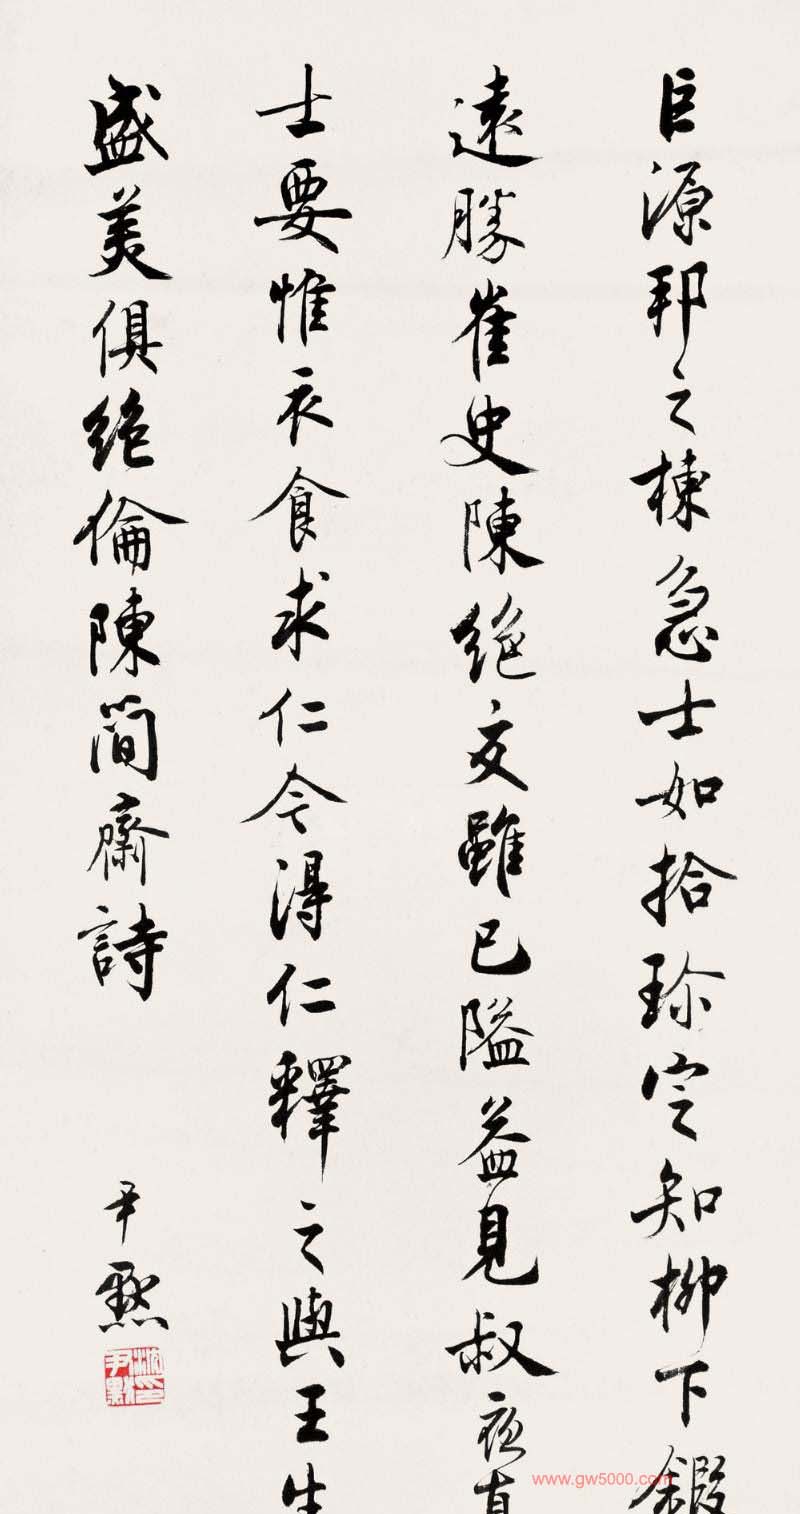 巨源邦之棟急士如拾珍定知柳下鍛
遠勝崔史陳絶交雖已隘益見叔夜真
士要惟衣食求仁今得仁釋之與王生
盛美俱絶倫陳簡齋詩
尹默
沈尹默印
www.gw5000.com